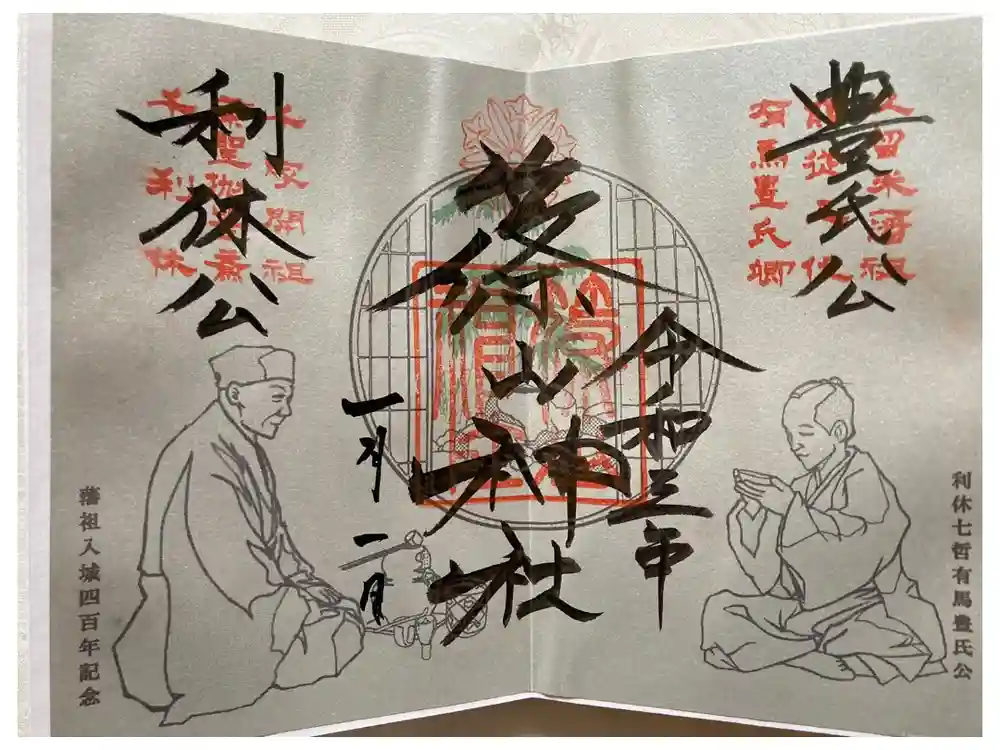 豊氏公
久留米藩祖
有馬豊氏卿
利休七哲有馬豊氏公
令和三年
篠山神社
一月一日
利休公
千家開祖
茶聖抛筌斎
千利休
藩祖入城四百年記念